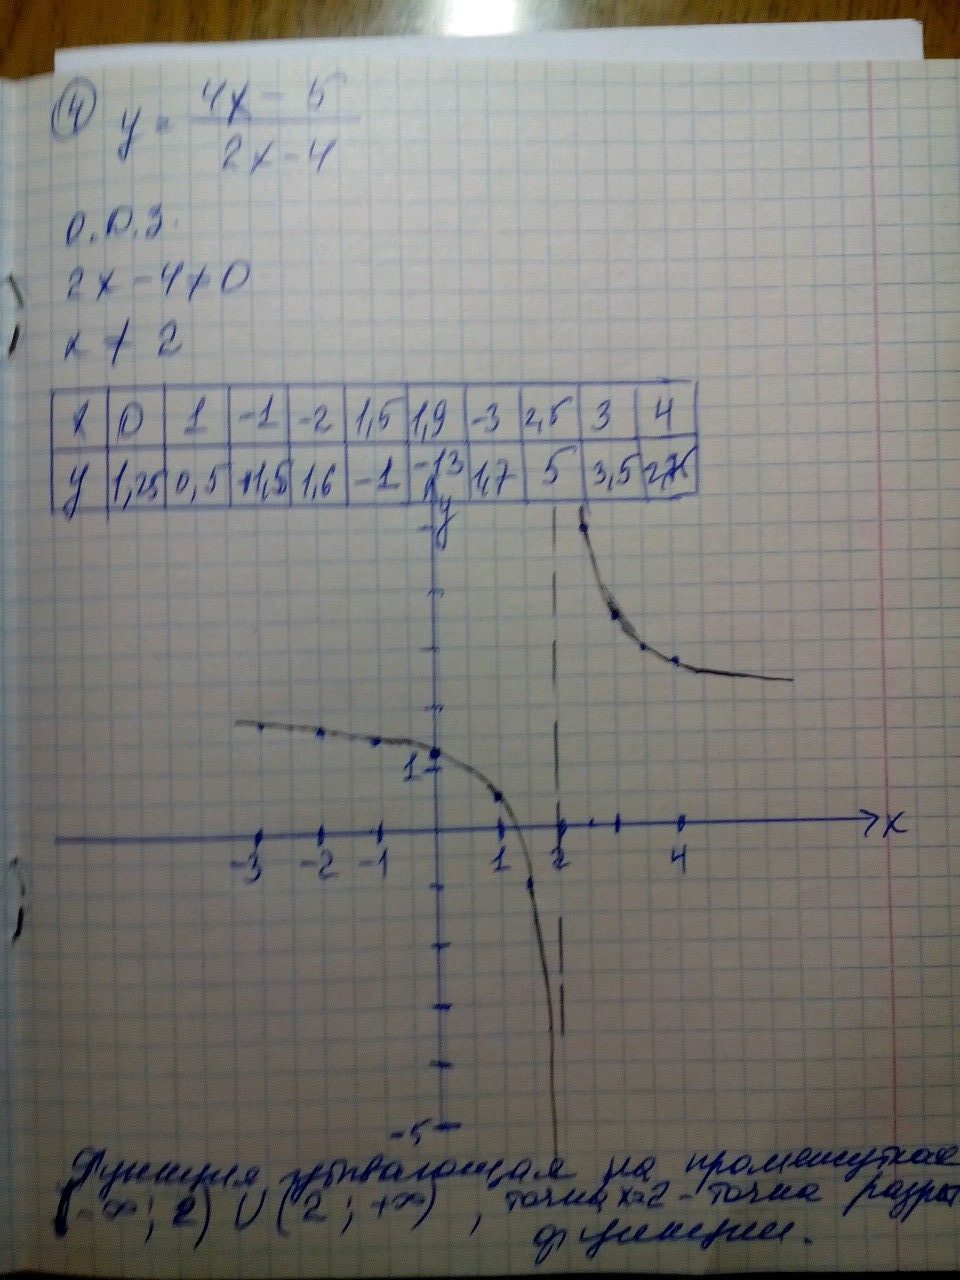 4 y = 4x - 5
2x - 4
О.О.З.
2x - 4 ≠ 0
x ≠ 2
x 0 1 -1 -2 1,5 1,9 -3 2,5 3 4
y 1,25 0,5 +1,5 1,6 -1 -13 1,7 5 3,5 2,75
y
1
x
-3 -2 -1 1 2 4
-5
Функция убывающая на промежутках
(-∞; 2) ∪ (2; +∞), точка x=2 - точка разры
функции.